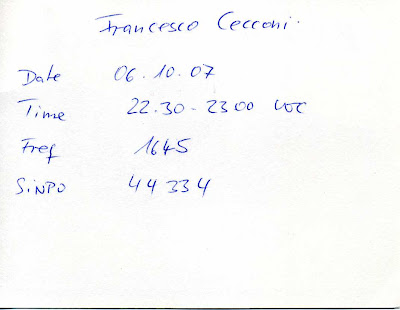 Francesco Cecconi.
Date 06.10.07
Time 22.30-2300 UTC
Freq 1645
SiNPO 44334